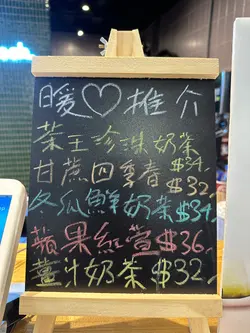 暖♡推介
茶王珍珠奶茶$34
甘蔗四季春$32
冬瓜鮮奶茶$34
蘋果紅萱$36
薑汁奶茶$32